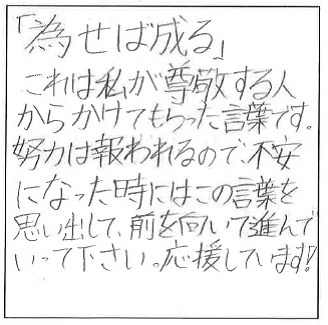 「為せば成る」
これは私が尊敬する人
からかけてもらった言葉です。
努力は報われるので、不安
になった時にはこの言葉を
思い出して、前を向いて進んで
いって下さい。応援しています!